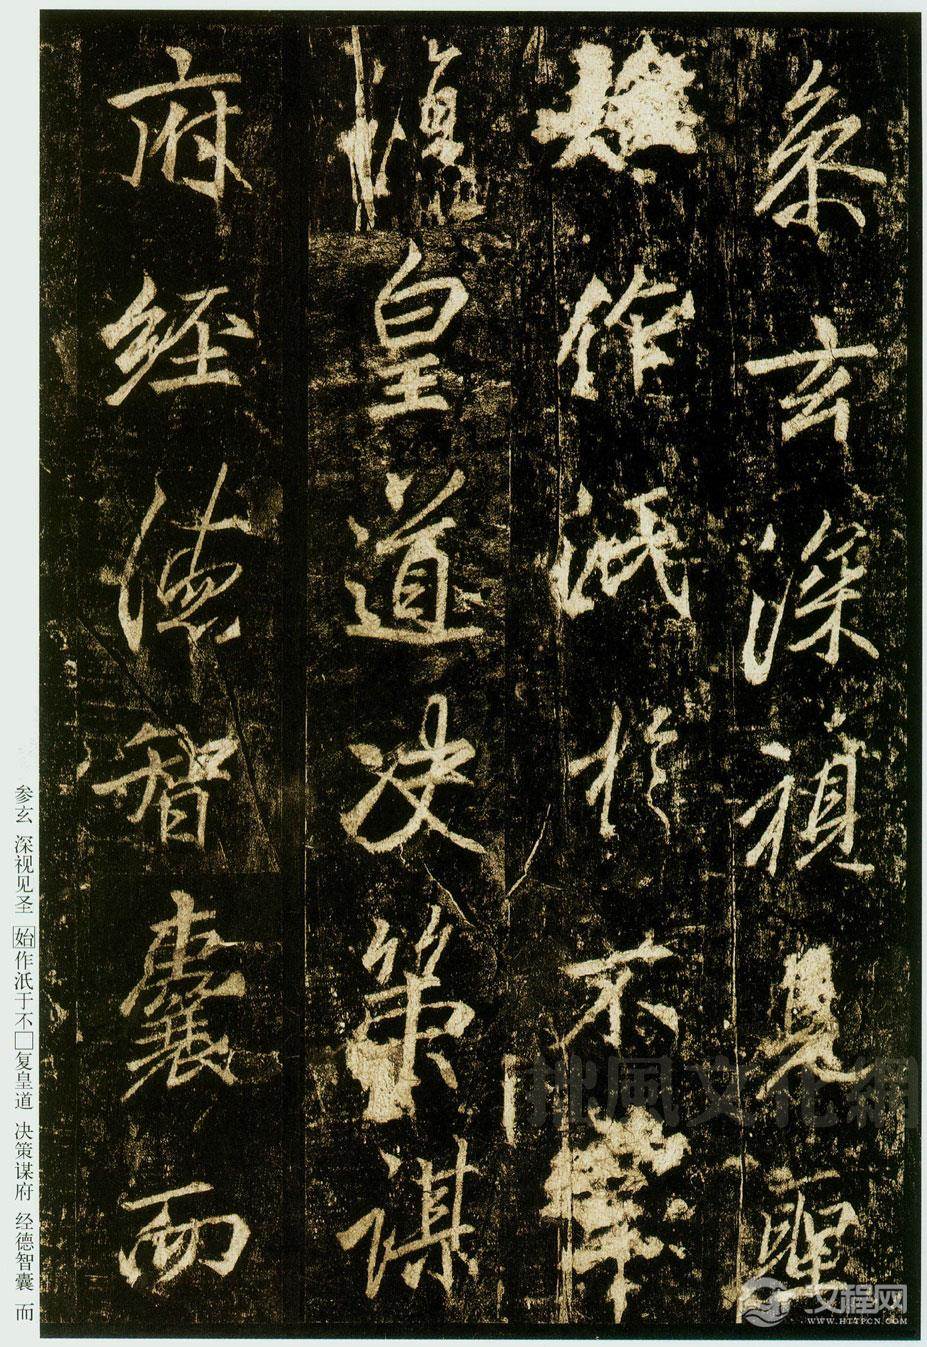 叅玄深視見聖
作汦於不
復皇道決策謀
府經德智囊而
参玄 深视见圣 始作汦于不□复皇道 决策谋府 经德智囊 而
拙風文化網
文程网
WWW.HTTPCN.COM